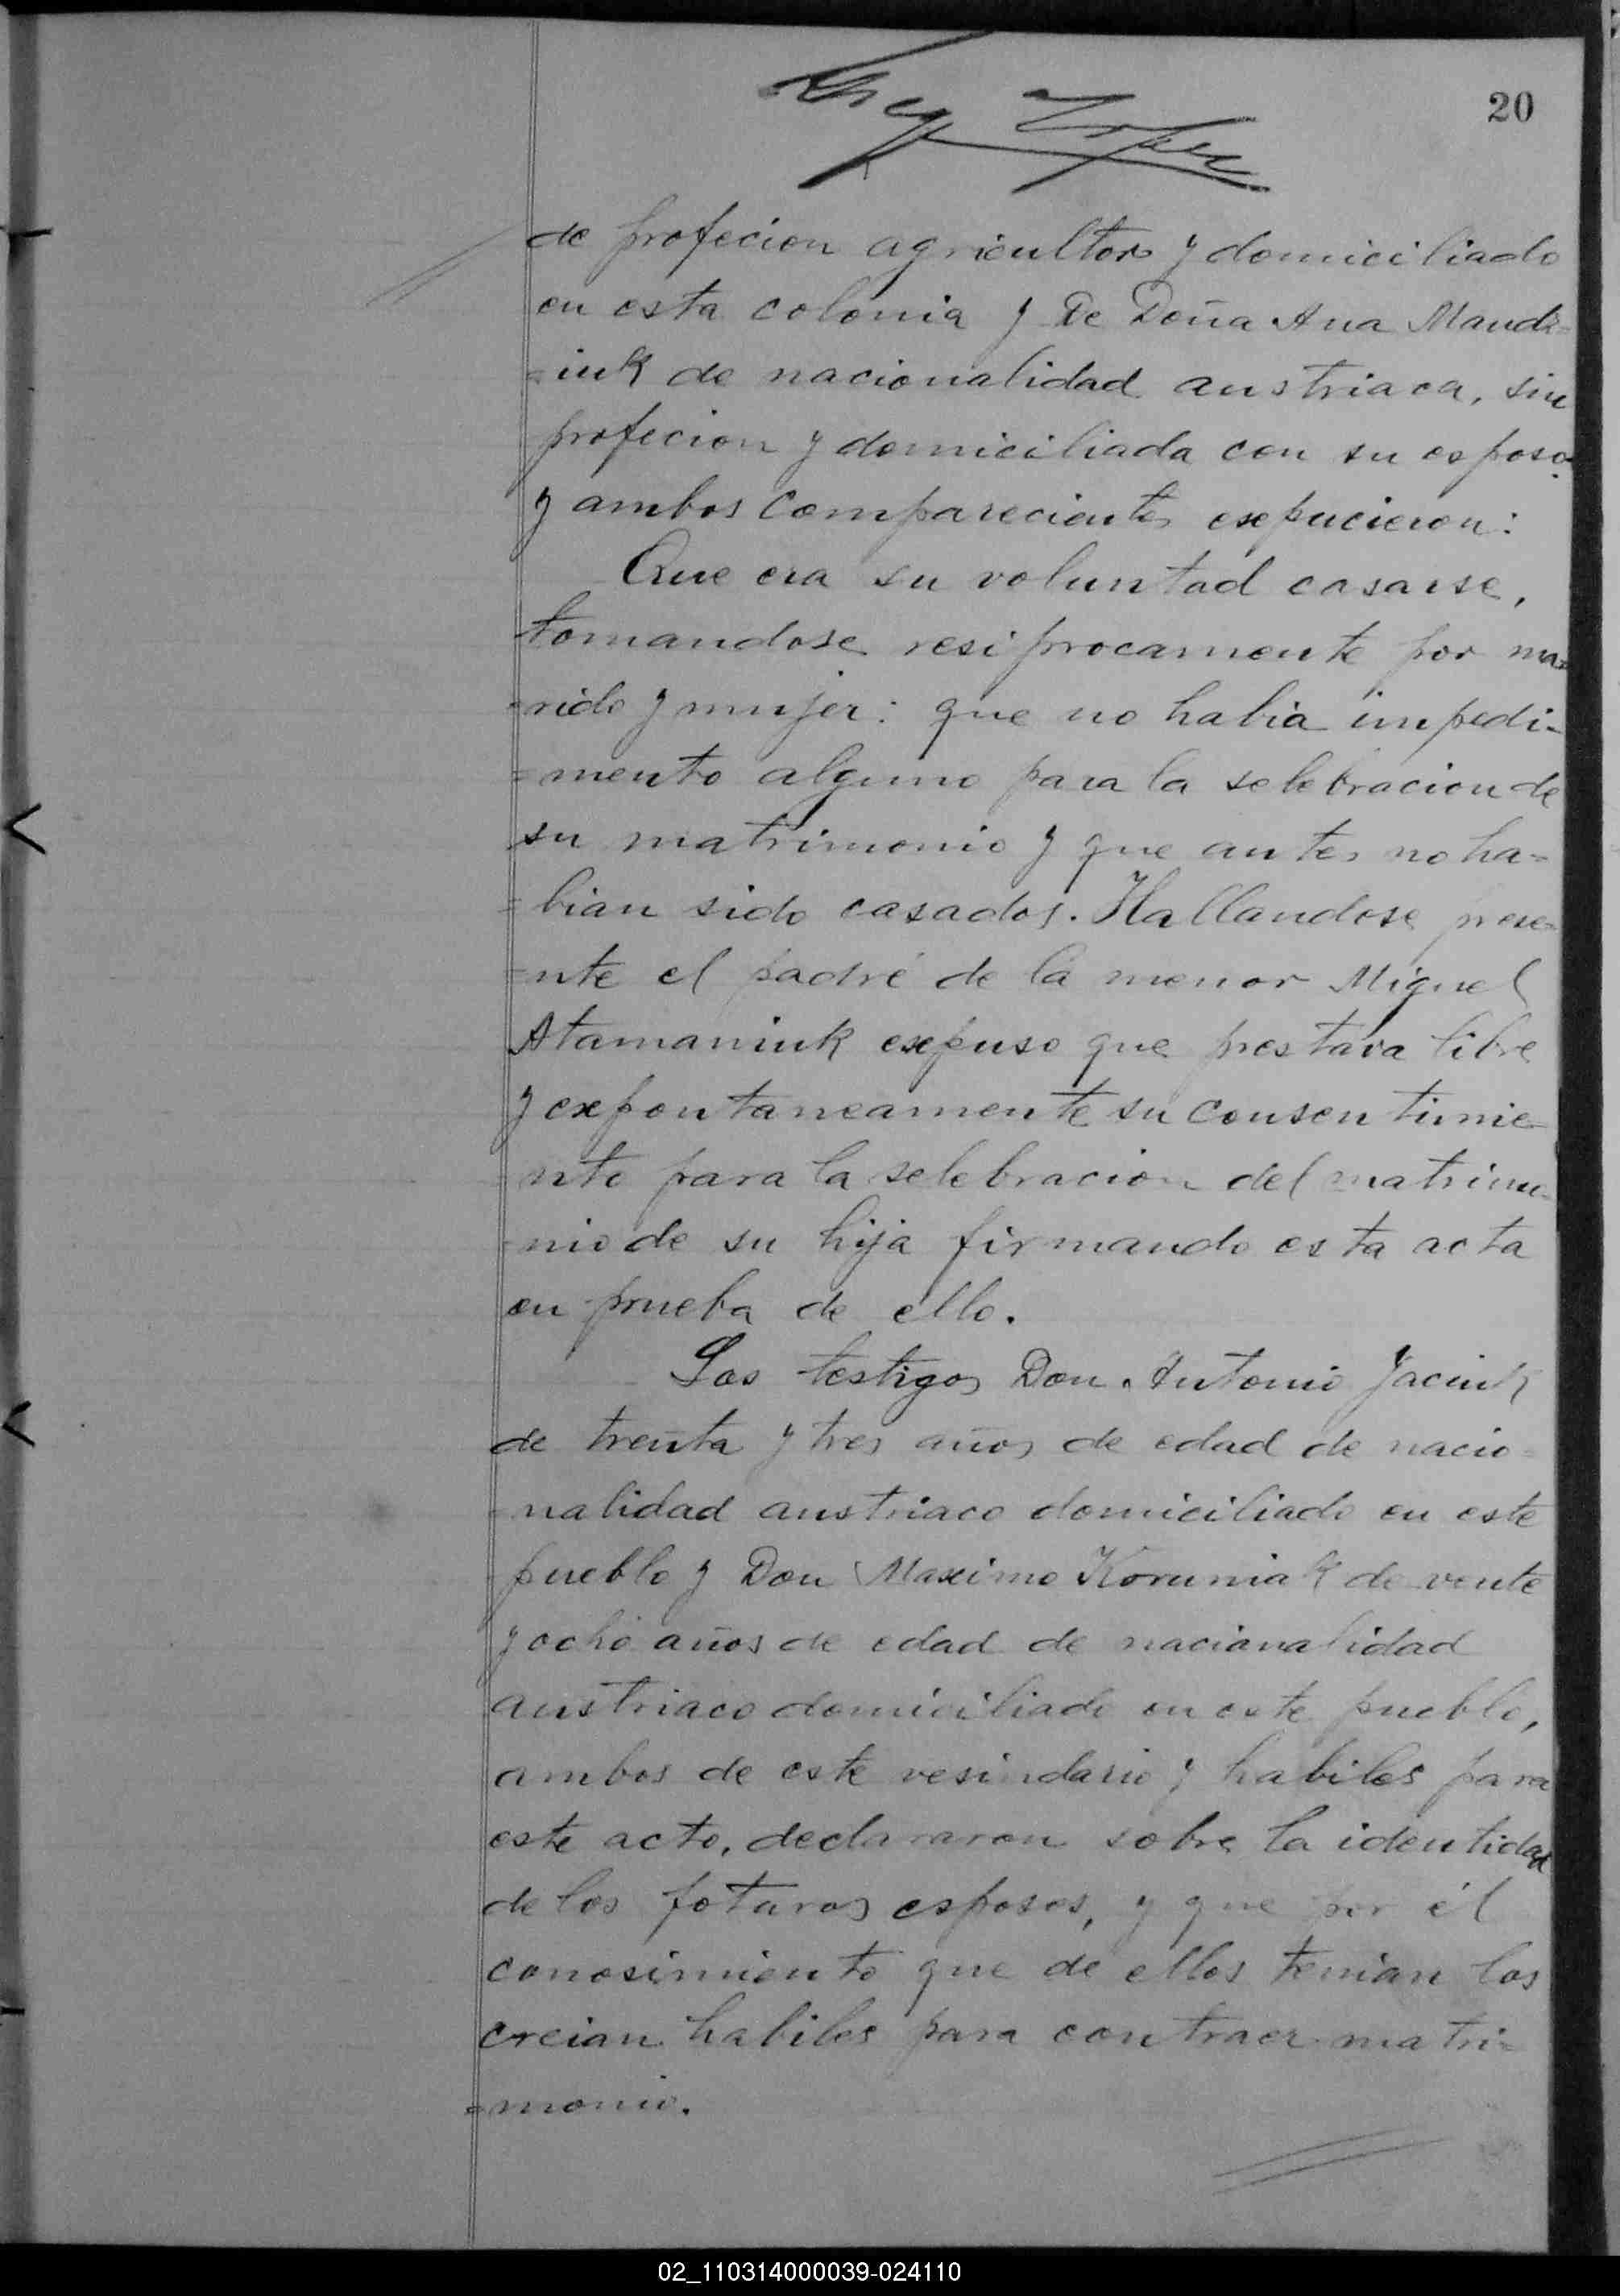 20
de profecion agricultor y domiciliado
en esta colonia y De Doña Ana Mandi=
=iuk de nacionalidad austriaca, sin
profecion y domiciliada con su esposo.
y ambos comparecientes expucieron:
Que era su voluntad casarse,
tomandose resiprocamente por ma=
=rido y mujer: que no habia impedi=
=mento alguno para la selebracion de
su matrimonio y que antes no ha=
=bian sido casados. Hallandose prese=
=nte el padre de la menor Miguel
Atamaniuk expuso que prestava libre
y expontaneamente su consentimie=
nto para la selebracion del matrimo=
=nio de su hija firmando esta acta
en prueba de ello.
Los testigos Don Antonio Jaciuk
de treinta y tres años de edad de nacio=
=nalidad austriaco domiciliado en este
pueblo y Don Maximo Koruniak de vente
y ocho años de edad de nacianalidad
austriaco domiciliado en este pueblo,
ambos de este vesindario y habiles para
este acto, declararon sobre la identidad
de los foturos esposos, y que por él
conosimiento que de ellos tenian los
creian habiles para contraer matri=
=monio.
02_110314000039-024110